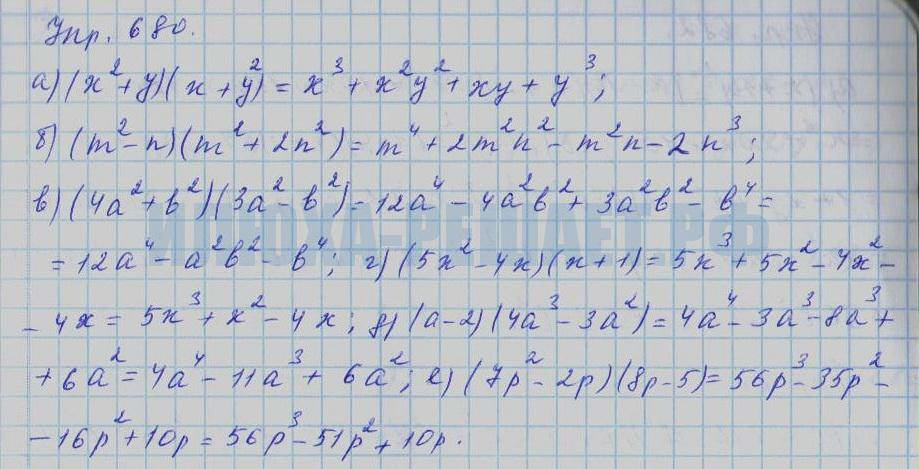 Упр. 680.
а) (x²+y)(x+y²) = x³ + x²y² + xy + y³;
б) (m²-n)(m²+2n²) = m⁴ + 2m²n² - m²n - 2n³;
в) (4a²+b²)(3a²-b²) = 12a⁴ - 4a²b² + 3a²b² - b⁴ =
= 12a⁴ - a²b² - b⁴; г) (5x²-4x)(x+1) = 5x³ + 5x² - 4x² -
ИЛЮХА-РЕШАЕТ.РФ
- 4x = 5x³ + x² - 4x; д) (a-2)(4a³-3a²) = 4a⁴ - 3a³ - 8a³ +
+ 6a² = 4a⁴ - 11a³ + 6a²; е) (7p²-2p)(8p-5) = 56p³ - 35p² -
- 16p² + 10p = 56p³ - 51p² + 10p.